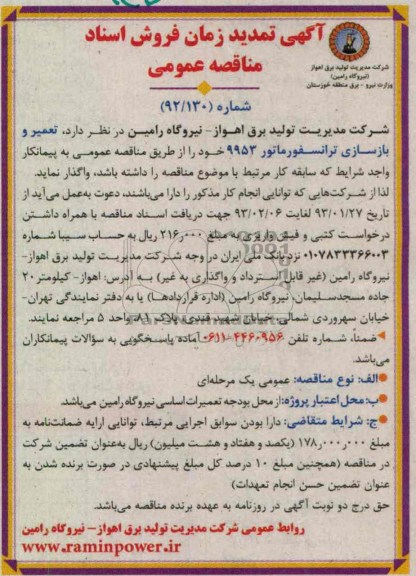 آگهی تمدید زمان فروش اسناد
مناقصه عمومی
شرکت مدیریت تولید برق اهواز
(نیروگاه رامین)
وزارت نیرو - برق منطقه خوزستان
شماره (۹۲/۱۳۰)
شرکت مدیریت تولید برق اهواز - نیروگاه رامین در نظر دارد، تعمیر و
بازسازی ترانسفورماتور ۹۹۵۳ خود را از طریق مناقصه عمومی به پیمانکار
واجد شرایط که سابقه کار مرتبط با موضوع مناقصه را داشته باشد، واگذار نماید.
لذا از شرکت‌هایی که توانایی انجام کار مذکور را دارا می‌باشند، دعوت به‌عمل می‌آید از
تاریخ ۹۳/۰۱/۲۷ لغایت ۹۳/۰۲/۰۶ جهت دریافت اسناد مناقصه با همراه داشتن
درخواست کتبی و فیش واریزی به مبلغ ۲۱۶٫۰۰۰ ریال به حساب سیبا شماره
۰۱۰۷۸۳۳۳۶۶۰۰۳ نزد بانک ملی ایران در وجه شرکت مدیریت تولید برق اهواز-
نیروگاه رامین (غیر قابل استرداد و واگذاری به غیر) به آدرس: اهواز- کیلومتر ۲۰
جاده مسجدسلیمان، نیروگاه رامین (اداره قراردادها) یا به دفتر نمایندگی تهران-
خیابان سهروردی شمالی، خیابان شهید قندی، پلاک ۸۱، واحد ۵ مراجعه نمایند.
ضمناً، شماره تلفن ۴۴۶۰۹۵۶-۰۶۱۱ آماده پاسخگویی به سؤالات پیمانکاران
می‌باشد.
الف: نوع مناقصه: عمومی یک مرحله‌ای
ب: محل اعتبار پروژه: از محل بودجه تعمیرات اساسی نیروگاه رامین می‌باشد.
ج: شرایط متقاضی: دارا بودن سوابق اجرایی مرتبط، توانایی ارایه ضمانت‌نامه به
مبلغ ۱۷۸٫۰۰۰٫۰۰۰ (یکصد و هفتاد و هشت میلیون) ریال به‌عنوان تضمین شرکت
در مناقصه (همچنین مبلغ ۱۰ درصد کل مبلغ پیشنهادی در صورت برنده شدن به
عنوان تضمین حسن انجام تعهدات)
حق درج دو نوبت آگهی در روزنامه به عهده برنده مناقصه می‌باشد.
روابط عمومی شرکت مدیریت تولید برق اهواز - نیروگاه رامین
www.raminpower.ir